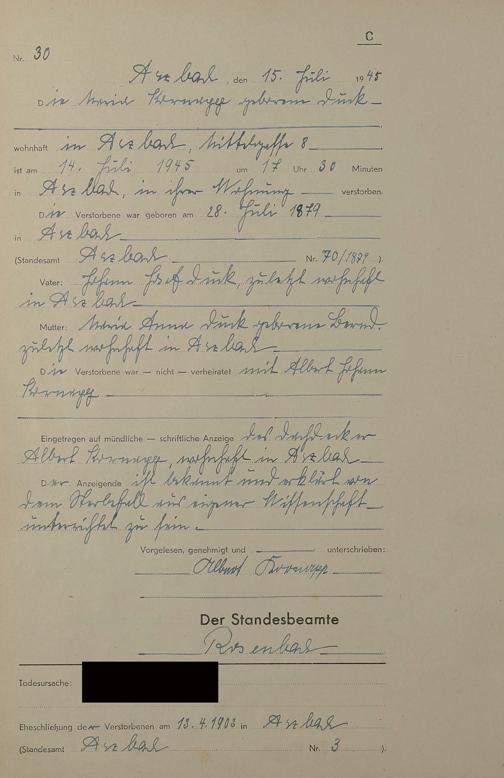 C
Nr. 30
Arzbach, den 15. Juli 1945
Die Maria Kornapp geborene Duck
wohnhaft in Arzbach, Mittelgasse 8
ist am 14. Juli 1945 um 17 Uhr 30 Minuten
in Arzbach, in ihrer Wohnung verstorben.
Die Verstorbene war geboren am 28. Juli 1879
in Arzbach
(Standesamt Arzbach Nr. 70/1879).
Vater: Johann Josef Duck, zuletzt wohnhaft
in Arzbach
Mutter: Maria Anna Duck geborene Bernd
zuletzt wohnhaft in Arzbach
Die Verstorbene war — nicht — verheiratet mit Albert Johann
Kornapp
Eingetragen auf mündliche — schriftliche Anzeige des Dachdecker
Albert Kornapp, wohnhaft in Arzbach
Der Anzeigende ist bekannt und erklärt von
dem Sterbefall aus eigener Wissenschaft
unterrichtet zu sein.
Vorgelesen, genehmigt und unterschrieben:
Albert Kornapp
Der Standesbeamte
Rosenbach
Todesursache:
Eheschließung der Verstorbenen am 13.4.1903 in Arzbach
(Standesamt Arzbach Nr. 3).